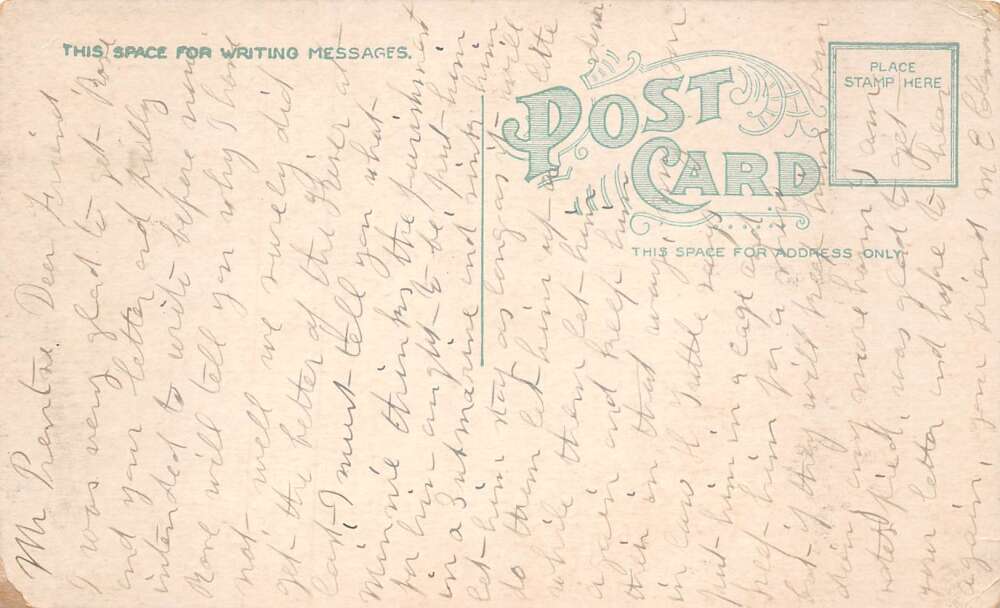 THIS SPACE FOR WRITING MESSAGES.
POST CARD
PLACE
STAMP HERE
THIS SPACE FOR ADDRESS ONLY
Mr Dear Friend
I was very glad to get
and your letter and fully
intended to write before now
will tell you why I have
not well we surely did
get the better of the at
last I must tell you what
Minnie thinks the punishment
for him ought to be put him
in a Submarine and sink him
let him stay as long as it will
to them let him up a little
while then let him down
again and keep him
in that way
put him in a cage and
him for a
but if they will keep him from
doing any more harm I am
satisfied, was glad to get
your letter and hope to hear
again, your friend M E